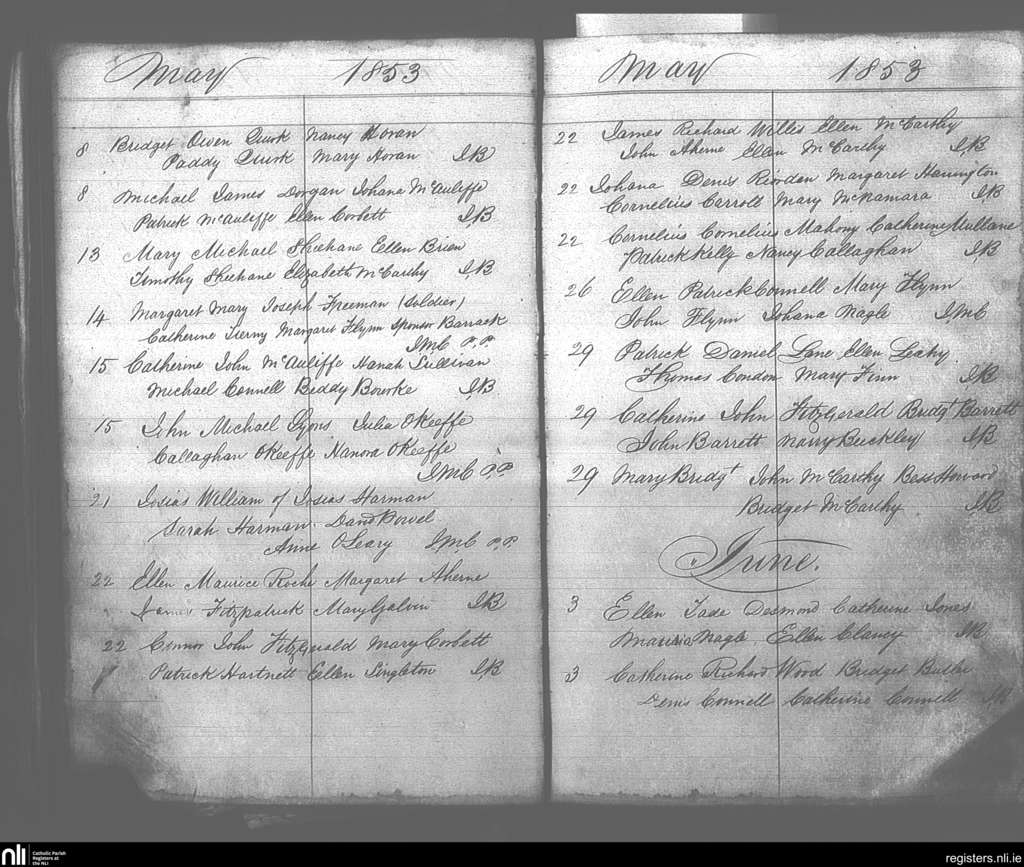 May 1853
8 Bridget Owen Quirk Nancy Horan
Paddy Quirk Mary Horan J,B
8 Michael James Dorgan Johana McAuliffe
Patrick McAuliffe Ellen Corbett J,B
13 Mary Michael Sheehane Ellen Brien
Timothy Sheehane Elizabeth McCarthy J,B
14 Margaret Mary Joseph Freeman (Soldier)
Catherine Tierny Margaret Flynn Sponsor Barrack
J.M.C P.P.
15 Catherine John McAuliffe Hanah Sullivan
Michael Connell Biddy Bourke J,B
15 John Michael Lyons Julia OKeeffe
Callaghan OKeeffe Hanora OKeeffe
J.M.C P.P
21 Josias William of Josias Harman
Sarah Harman. David
Anne OLeary J.M.C P.P.
22 Ellen Maurice Roche Margaret Aherne
James Fitzpatrick Mary Galvin J,B
22 Connor John Fitzgerald Mary Corbett
Patrick Hartnett Ellen Singleton J,B
May 1853
22 James Richard Willis Ellen McCarthy
John Aherne Ellen McCarthy J,B
22 Johana Denis Riordan Margaret Harrington
Cornelius Carroll Mary McNamara J,B
22 Cornelius Cornelius Mahony Catherine Mullane
Patrick Kelly Nancy Callaghan J,B
26 Ellen Patrick Connell Mary Flynn
John Flynn Johana Nagle J.M.C
29 Patrick Daniel Lane Ellen Leahy
Thomas Condon Mary Finn J,B
29 Catherine John Fitzgerald Bridgt Barrett
John Barrett Buckley J,B
29 Mary Bridgt John McCarthy Bess Howard
Bridget McCarthy J,B
June.
3 Ellen Tade Desmond Catherine Jones
Nagle Ellen Clancy J,B
3 Catherine Richard Wood Bridget Butler
Denis Connell Catherine Connell J,B
nli Catholic Parish
Registers at
the NLI
registers.nli.ie